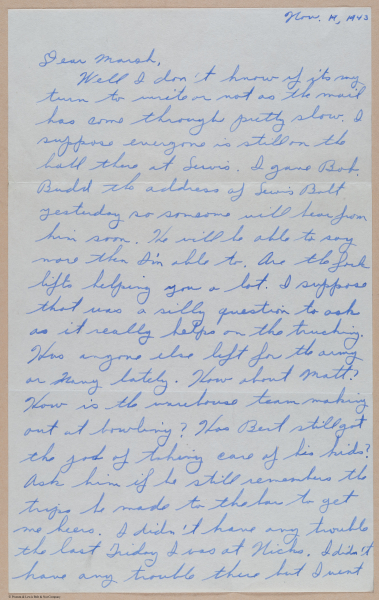 Nov. 19, 1943
Dear Marsh,
Well I don't know if its my
turn to write or not as the mail
has come through pretty slow. I
suppose everyone is still on the
ball there at Lewis. I gave Bob.
Budd the address of Lewis Bolt
yesterday so someone will hear from
him soon. He will be able to say
more then I'm able to. Are the fork
lifts helping you a lot. I suppose
that was a silly question to ask
as it really helps on the trucking.
Has anyone else left for the army
or Navy lately. How about Matt?
How is the warehouse team making
out at bowling? Has Bert still got
the job of taking care of his kids?
Ask him if he still remembers the
trips he made to the bar to get
me beers. I didn't have any trouble
the last Friday I was at Nicks. I didn't
have any trouble there but I went